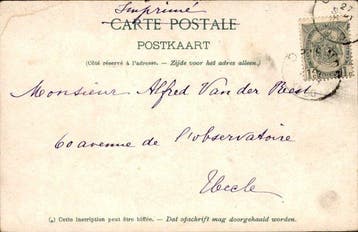 Imprimé
CARTE POSTALE
POSTKAART
(Côté réservé à l'adresse. — Zijde voor het adres alleen.)
Monsieur Alfred Van der Reest
60 avenue de l'observatoire
Uccle
(*) Cette inscription peut être biffée. — Dat opschrift mag doorgehaald worden.